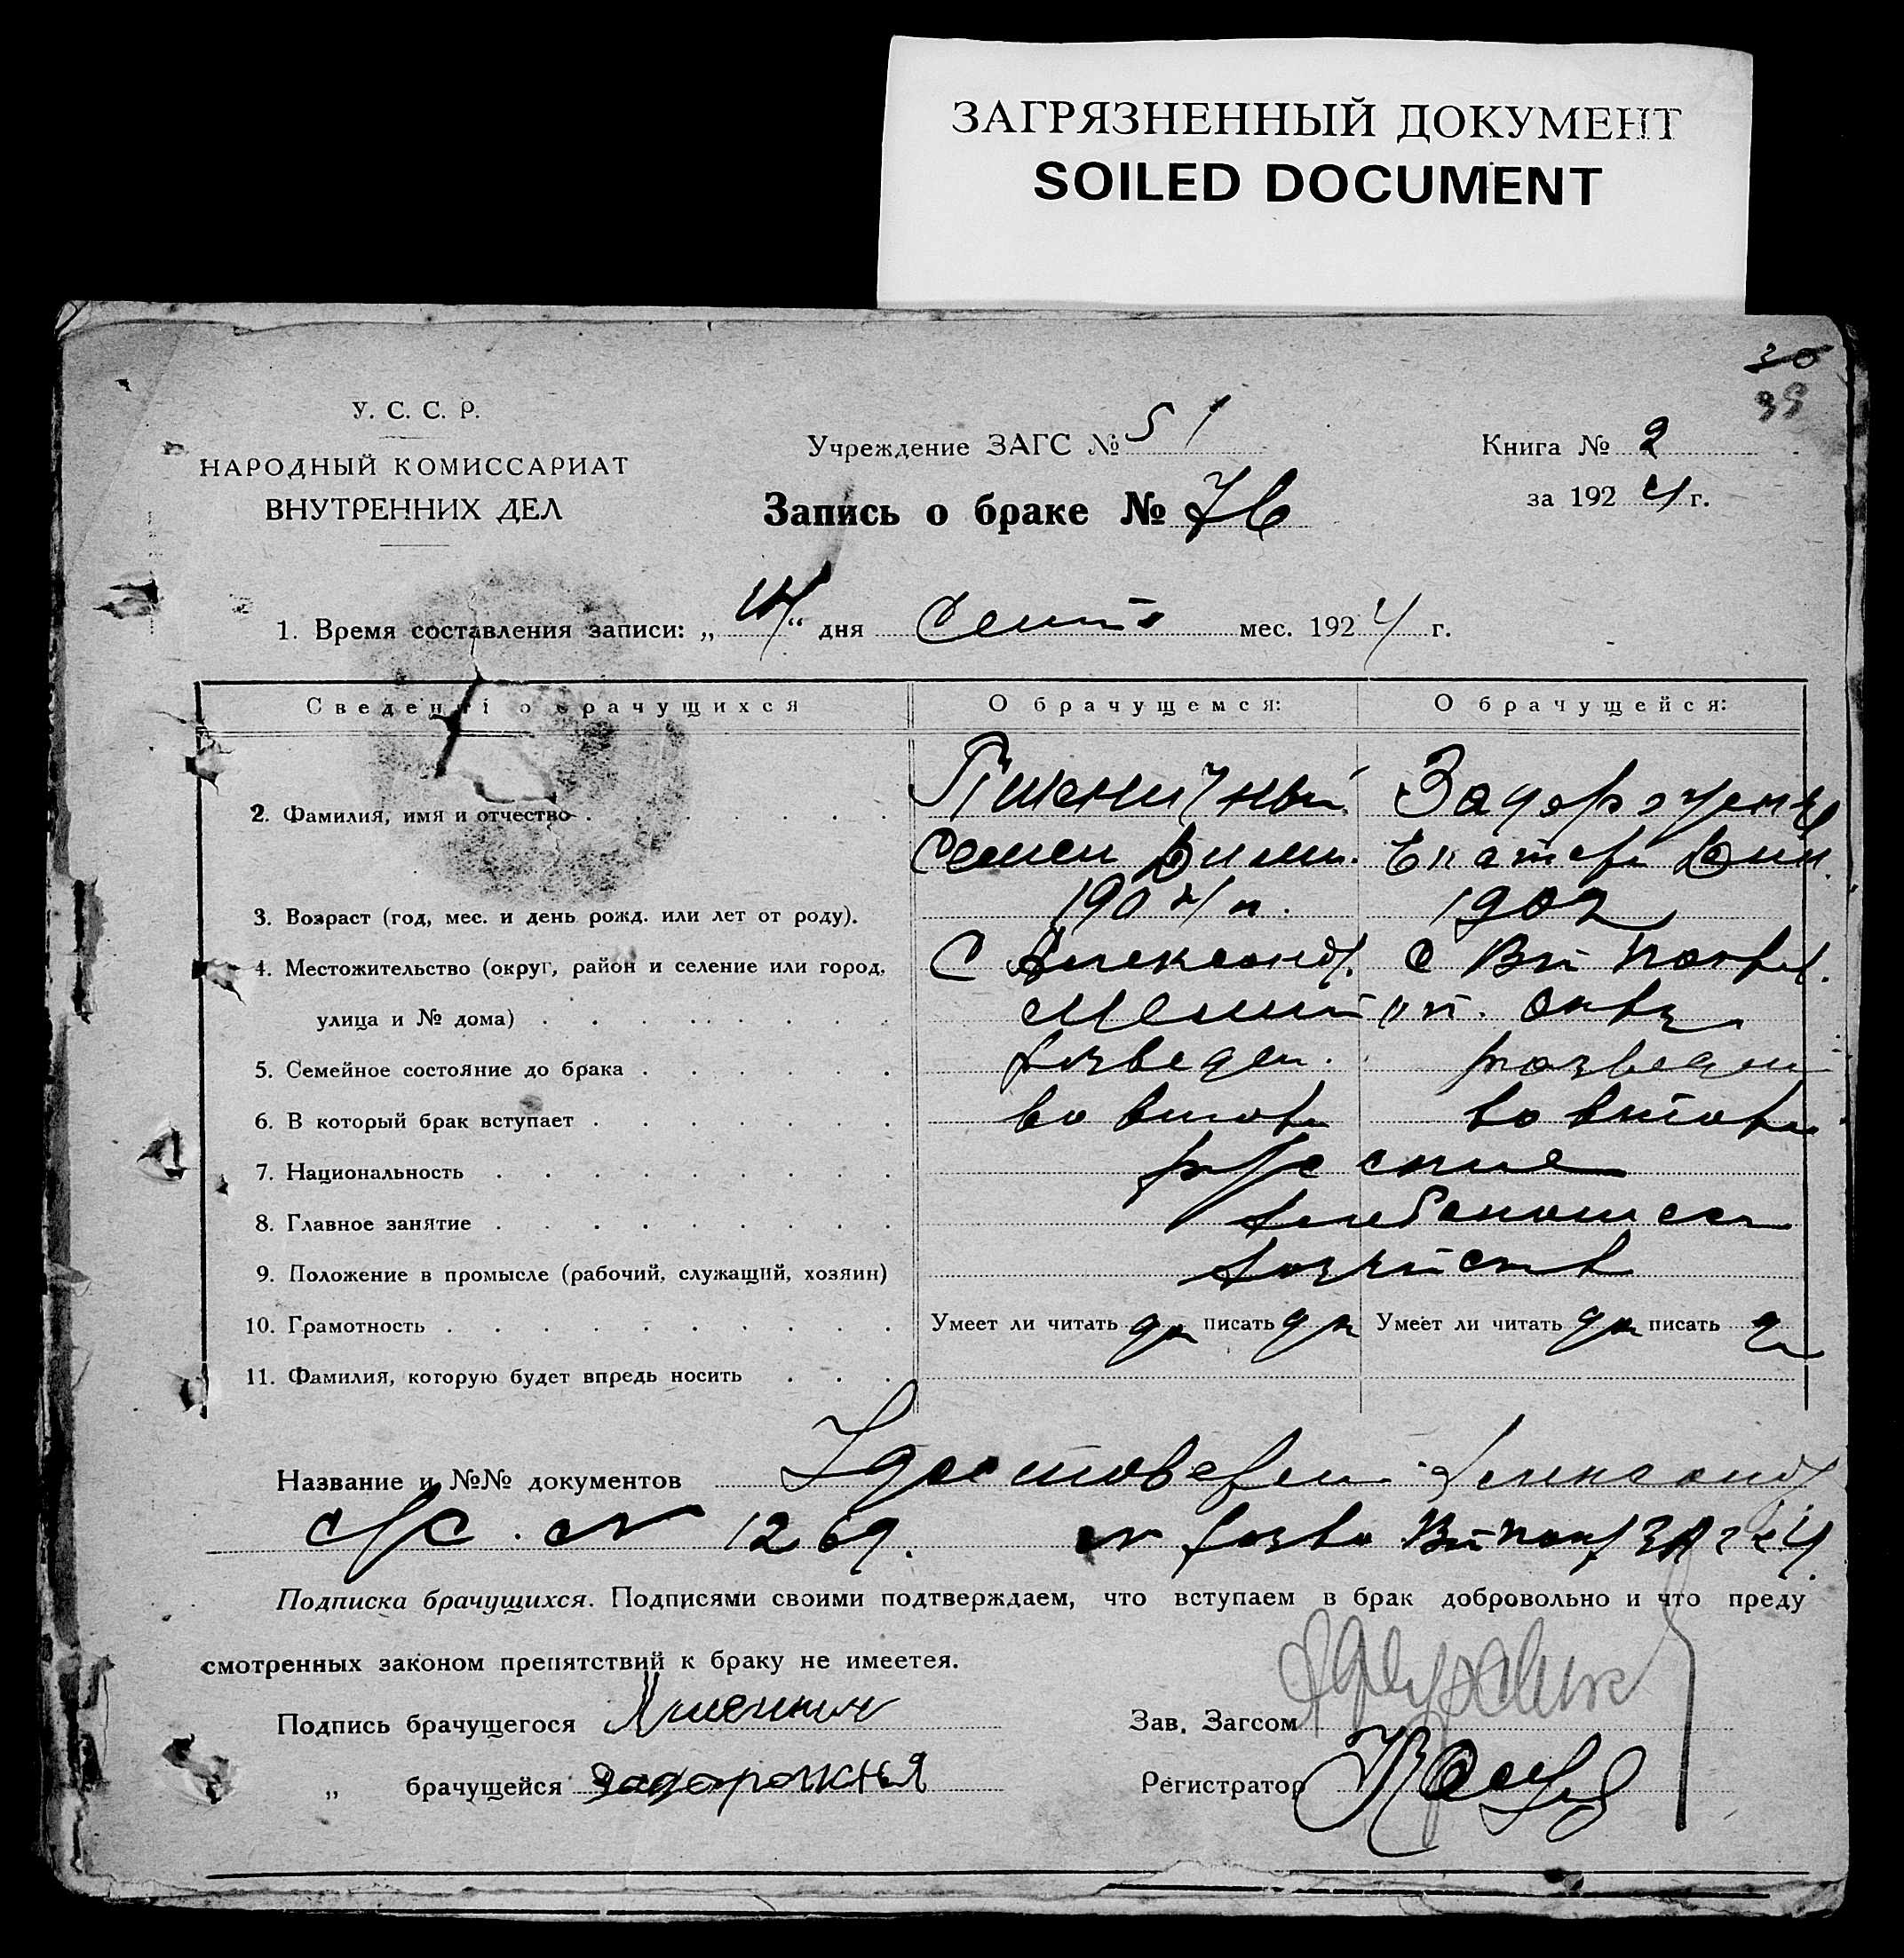 ЗАГРЯЗНЕННЫЙ ДОКУМЕНТ
SOILED DOCUMENT
30
39
У. С. С. Р.
НАРОДНЫЙ КОМИССАРИАТ
ВНУТРЕННИХ ДЕЛ
Учреждение ЗАГС № 51
Запись о браке № 76
Книга № 2
за 1924 г.
1. Время составления записи: „ “ дня Сент мес. 1924 г.
Сведені о брачущихся О брачущемся: О брачущейся:
2. Фамилия, имя и отчество Пшеничный
Семен Дим. Екатер Дим.
3. Возраст (год, мес. и день рожд. или лет от роду). 1902
4. Местожительство (округ, район и селение или город, С Александ. с Вп Покров.
улица и № дома)
5. Семейное состояние до брака розведен. розведен
6. В который брак вступает во втор во втор
7. Национальность русские
8. Главное занятие
9. Положение в промысле (рабочий, служащий, хозяин)
10. Грамотность Умеет ли читать да писать да Умеет ли читать да писать да
11. Фамилия, которую будет впредь носить
Название и №№ документов Удостоверен Александ
с/с. № 1269.
Подписка брачущихся. Подписями своими подтверждаем, что вступаем в брак добровольно и что преду
смотренных законом препятствий к браку не имеетея.
Подпись брачущегося Зав. Загсом
„ брачущейся задорожня Регистратор